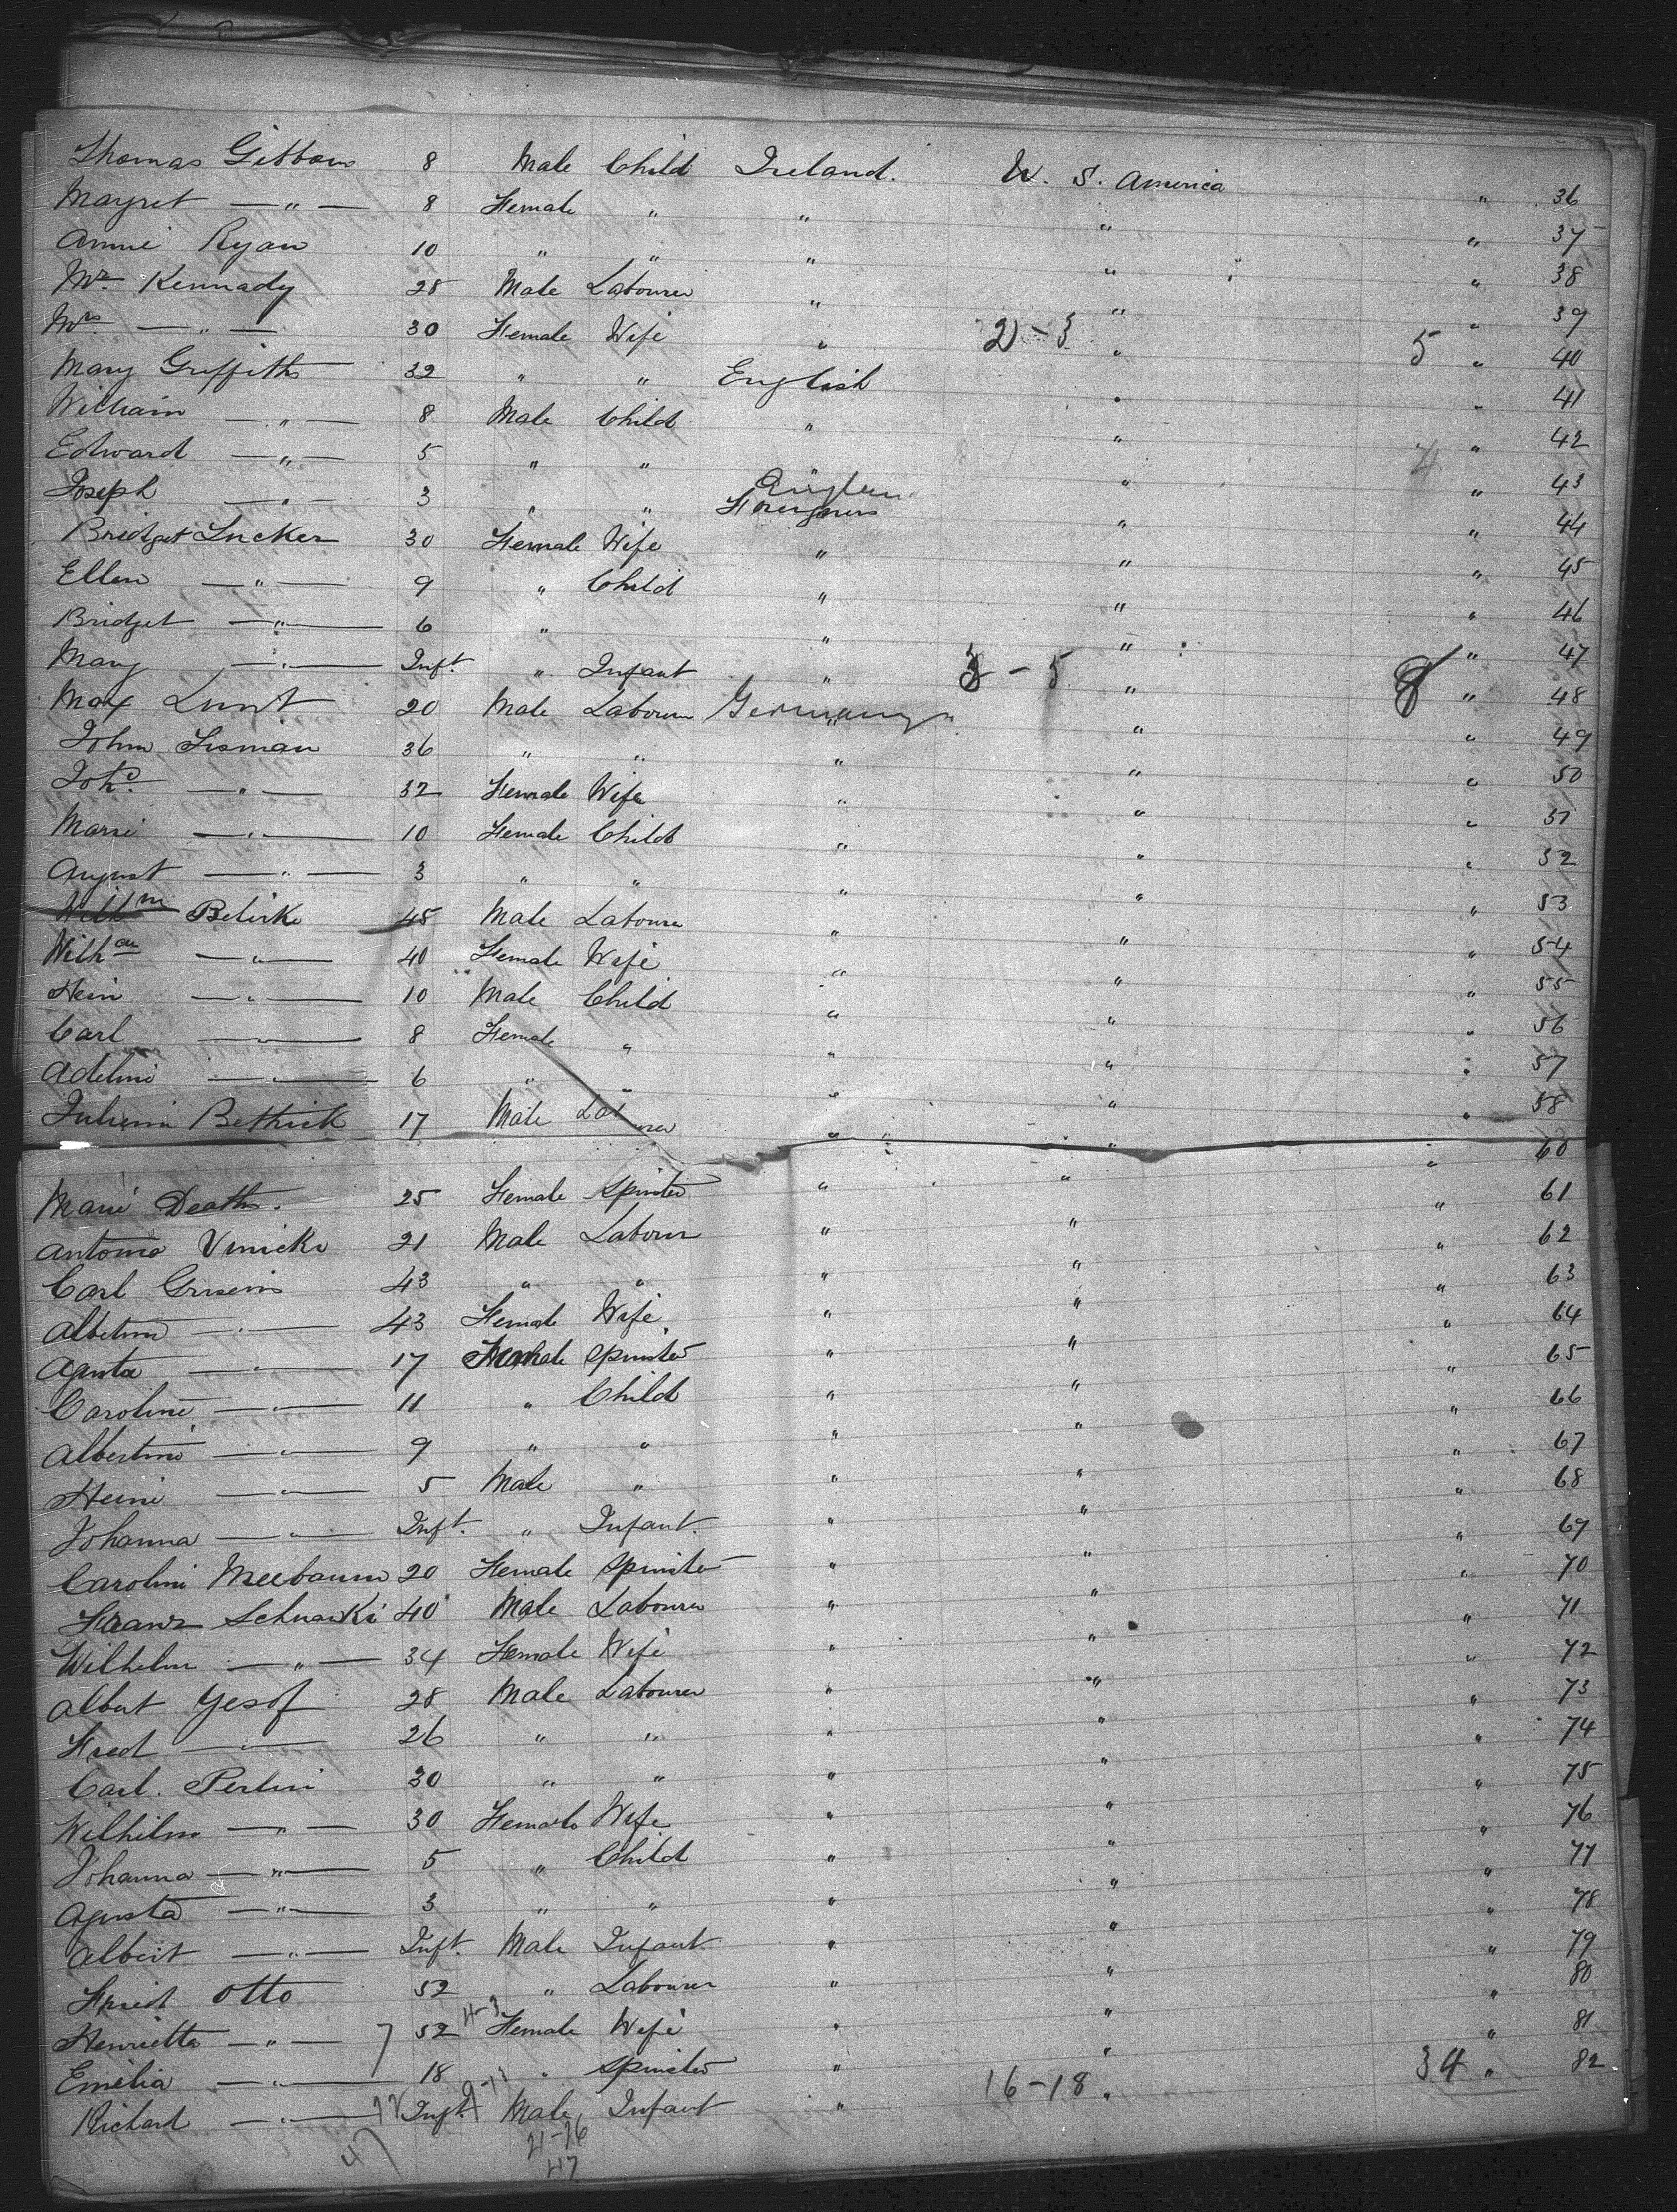 Thomas Gibbons 8 Male Child Ireland. U. S. America " 36
Mayret — " — 8 Female " " " " 37
Annie Ryan 10 " " " " " 38
Mr. Kennady 28 Male Labourer " " " 39
Mrs — " — 30 Female Wife " 2-3 " 5 " 40
Mary Griffiths 32 " " English " " 41
William — " — 8 Male Child " " " 42
Edward — " — 5 " " " " 4 " 43
Joseph — " — 3 " " Foreigners " " 44
Bridget Tucker 30 Female Wife " " " 45
Ellen — " — 9 " Child " " " 46
Bridget — " — 6 " " " " 47
Mary — " — Inft. " Infant " 3-5 " 8 " 48
Max Lunt 20 Male Labourer Germany " " 49
John Lisman 36 " " " " " 50
Joh. — " — 32 Female Wife " " " 51
Marie — " — 10 Female Child " " " 52
August — " — 3 " " " " " 53
Wilhm Belirke 45 Male Labourer " " " 54
Wilh — " — 40 Female Wife " " " 55
Hein — " — 10 Male Child " " " 56
Carl — " — 8 Female " " " " 57
Adelini — " — 6 " " " " " 58
Bethick 17 Male Labourer " " " 60
Marie Death. 25 Female Spinster " " " 61
Antonio Vinicki 21 Male Labourer " " " 62
Carl 43 " " " " " 63
— " — 43 Female Wife " " " 64
Agusta — " — 17 Female Spinster " " " 65
Caroline — " — 11 " Child " " " 66
Albertine — " — 9 " " " " " 67
Heini — " — 5 Male " " " " 68
Johanna — " — Inft. " Infant. " " " 69
Carolini Meebaum 20 Female Spinster " " " 70
Franz Schnaeki 40 Male Labourer " " " 71
Wilhelm — " — 34 Female Wife " " " 72
Albert Yesof 28 Male Labourer " " " 73
Fred — " — 26 " " " " " 74
Carl. Perlin 30 " " " " " 75
Wilhilm — " — 30 Female Wife " " " 76
Johanna — " — 5 " Child " " " 77
Agusta — " — 3 " " " " " 78
Albert — " — Inft. Male Infant " " " 79
Otto 52 " Labourer " " " 80
Henrietta — " — 7 52 4-3 Female Wife " " " 81
Emelia — " — 18 " Spinster " " 34 " 82
Richard — " — Inft. Male Infant " 16-18 "
47 21-26
47